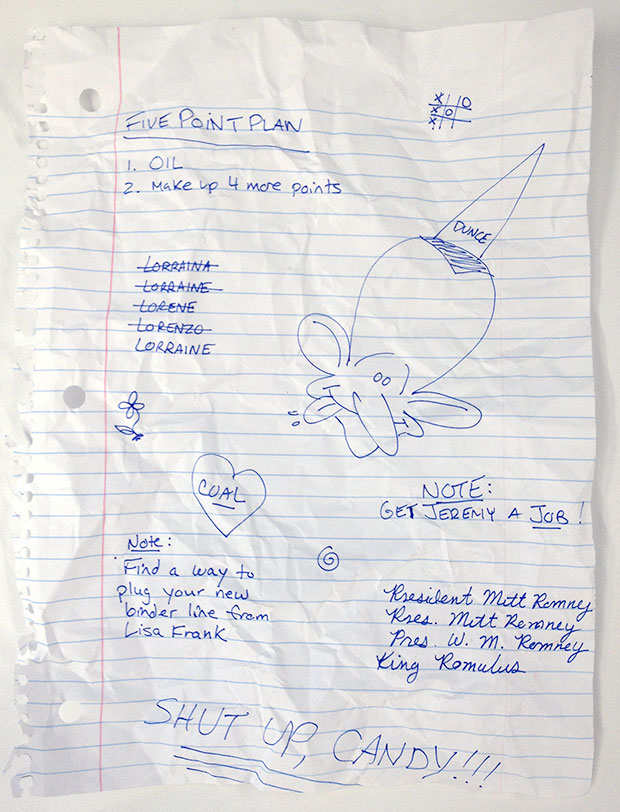 X O
X O
X
FIVE POINT PLAN
1. OIL
2. Make up 4 more points
DUNCE
LORRAINA
LORRAINE
LORENE
LORENZO
LORRAINE
COAL
NOTE:
GET JEREMY A JOB!
Note:
Find a way to
plug your new
binder line from
Lisa Frank
President Mitt Romney
Pres. Mitt Romney
Pres. W. M. Romney
King Romulus
SHUT UP, CANDY!!!